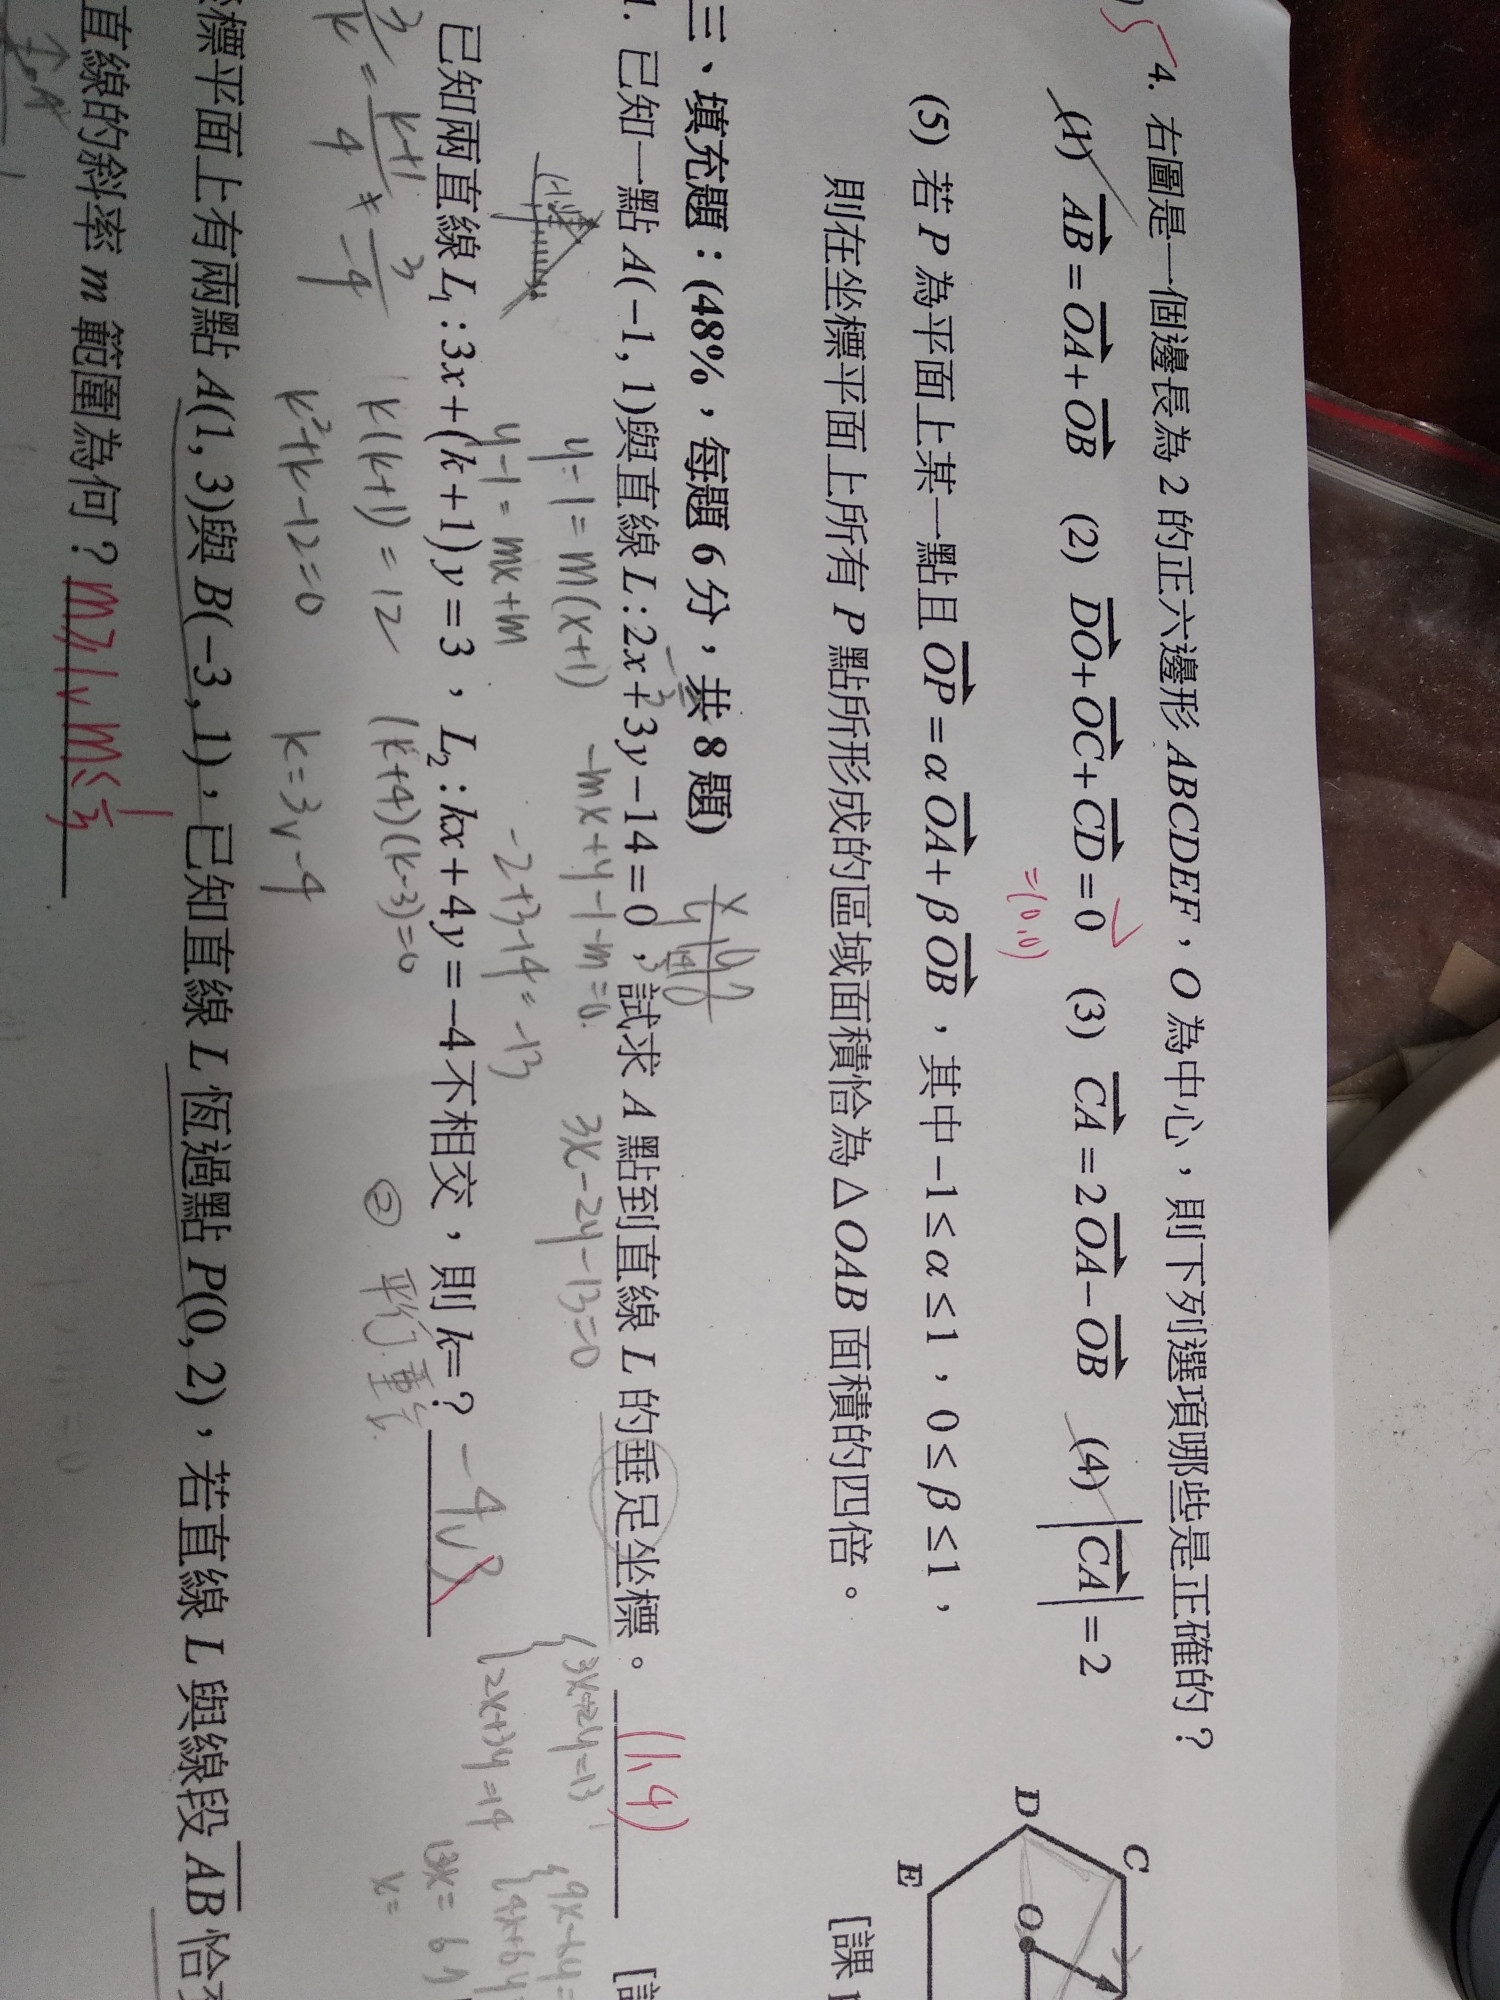 4. 右圖是一個邊長為 2 的正六邊形 ABCDEF，O 為中心，則下列選項哪些是正確的？
(1) AB = OA + OB (2) DO + OC + CD = 0 (3) CA = 2OA − OB (4) |CA| = 2
=(0,0)
(5) 若 P 為平面上某一點且 OP = αOA + βOB，其中 −1 ≤ α ≤ 1，0 ≤ β ≤ 1，
則在坐標平面上所有 P 點所形成的區域面積恰為 △OAB 面積的四倍。
C
D
O
E
[課
三、填充題：(48%，每題 6 分，共 8 題)
1. 已知一點 A(−1, 1)與直線 L : 2x + 3y − 14 = 0，試求 A 點到直線 L 的垂足坐標。 (1,4)
y-1=m(x+1) -mx+y-1-m=0. 3x-2y-13=0
y-1=mx+m -2+3-14=-13
2x+3y=14
已知兩直線 L₁ : 3x + (k + 1)y = 3，L₂ : kx + 4y = −4 不相交，則 k = ？ -4
3/k = k+1/4 ≠ 3/-4 k(k+1)=12 (k+4)(k-3)=0 ② 平行.重合.
13x=
x=
k²+k-12=0 k=3∨-4
標平面上有兩點 A(1, 3)與 B(−3, 1)，已知直線 L 恆過點 P(0, 2)，若直線 L 與線段 AB 恰
直線的斜率 m 範圍為何？ m≥1∨m≤1/3